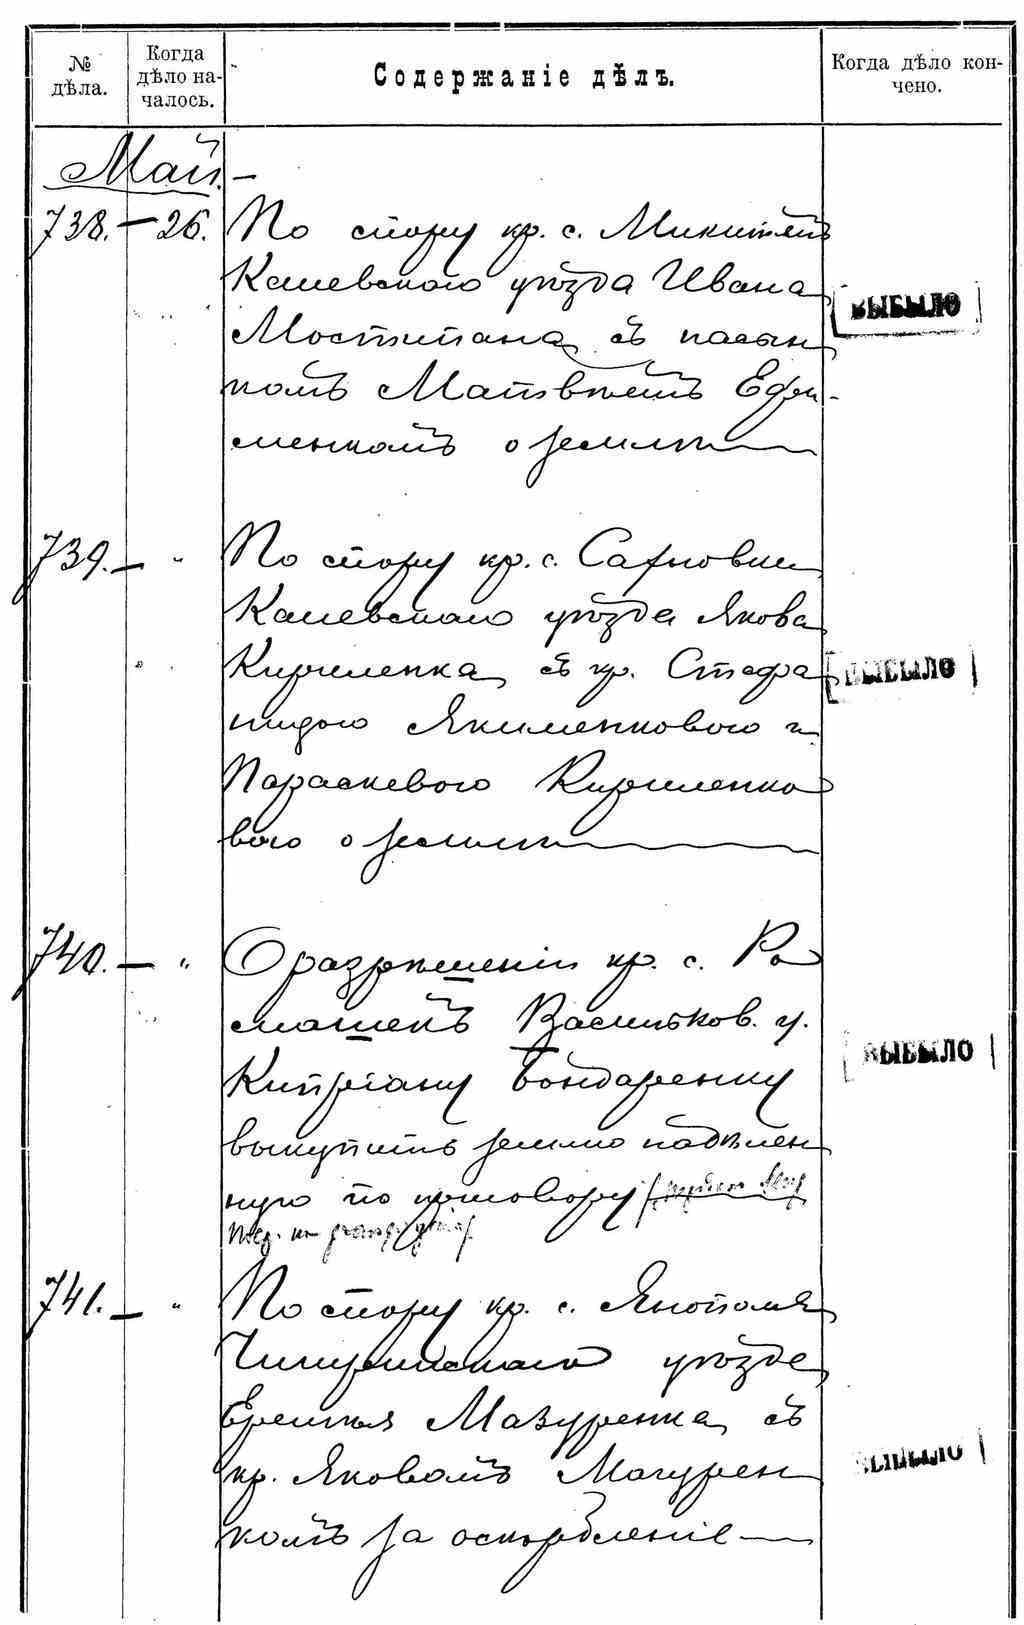 № дѣла.
Когда дѣло началось.
Содержаніе дѣлъ.
Когда дѣло кончено.
Май.
738. — 26. По спору кр. с. Микитянъ
Каневскаго уѣзда Ивана
Мостипана съ пасын
комъ Матвѣемъ Ефи-
менкомъ о землѣ
ВЫБЫЛО
739. — " По спору кр. с.
Каневскаго уѣзда Якова
Кириленка съ кр. Стефа
нидою Якименковою и
Параскевою Кириленко
вою о землѣ
ВЫБЫЛО
740. — " О разрѣшеніи кр. с. Ро
машекъ Васильков. у.
Кипріану Бондаренку
выкупить землю надѣлен
ную по приговору
ВЫБЫЛО
741. — " По спору кр. с. Янополя
Чигиринскаго уѣзда
Еремѣя Мазуренка съ
кр. Яковомъ Мазурен
комъ за оскорбленіе
ВЫБЫЛО